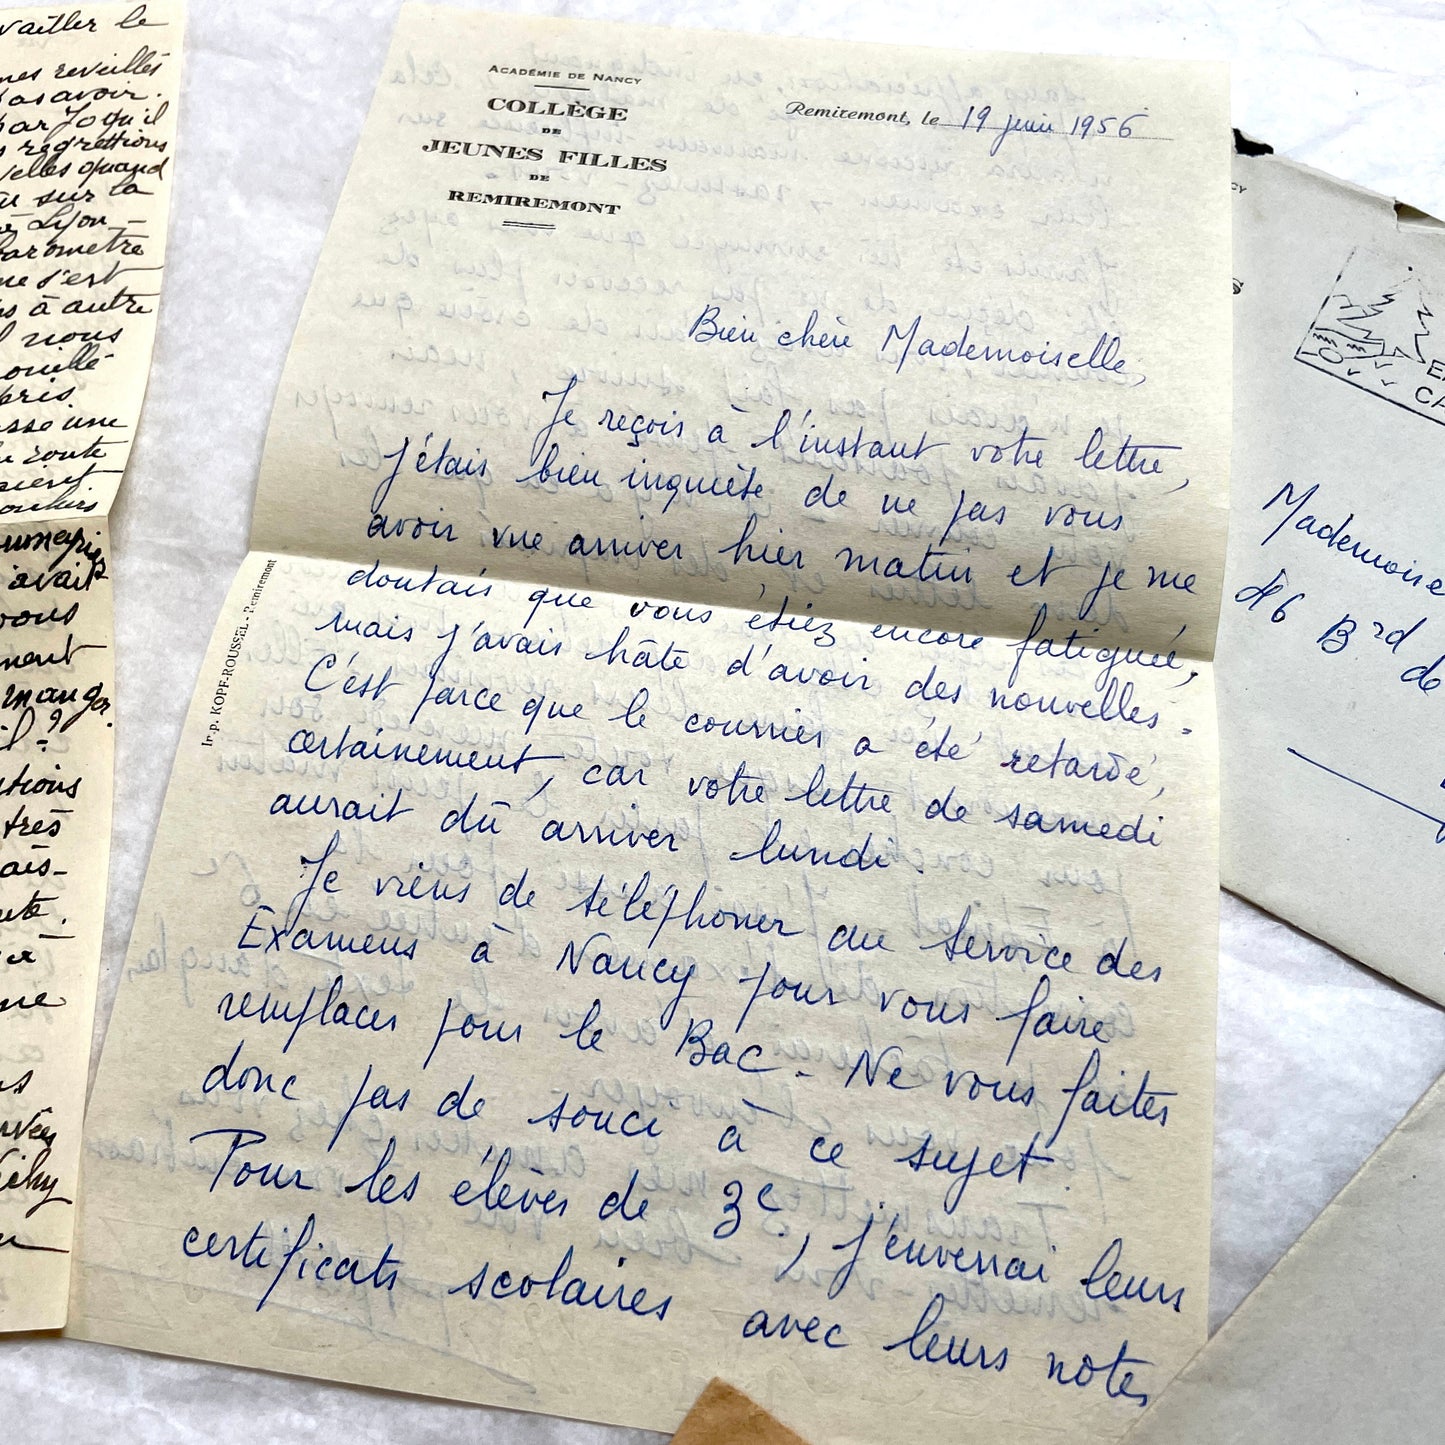 vailler le
mes reveillés
pas avoir.
par Jo qu'il
s regrettions
velles quand
sur la
à Lyon –
barometre
me s'est
s à autre
il nous
ouillé
pris
sse une
route
avait
vous
ment
manger
il ?
utions
très
ais-
me
Vichy
ACADÉMIE DE NANCY
COLLÈGE
DE
JEUNES FILLES
DE
REMIREMONT
Remiremont, le 19 juin 1956
Bien chère Mademoiselle,
Je reçois à l'instant votre lettre,
j'étais bien inquiète de ne pas vous
avoir vue arriver hier matin et je me
doutais que vous étiez encore fatiguée,
mais j'avais hâte d'avoir des nouvelles.
C'est parce que le courrier a été retardé,
certainement, car votre lettre de samedi
aurait dû arriver lundi.
Je viens de téléphoner au Service des
Examens à Nancy pour vous faire
remplacer pour le Bac. Ne vous faites
donc pas de souci à ce sujet.
Pour les élèves de 3e, j'enverrai leurs
certificats scolaires avec leurs notes
Imp. KOPF-ROUSSEL - Remiremont
CY
S
CA
Mademoise
46 Brd de